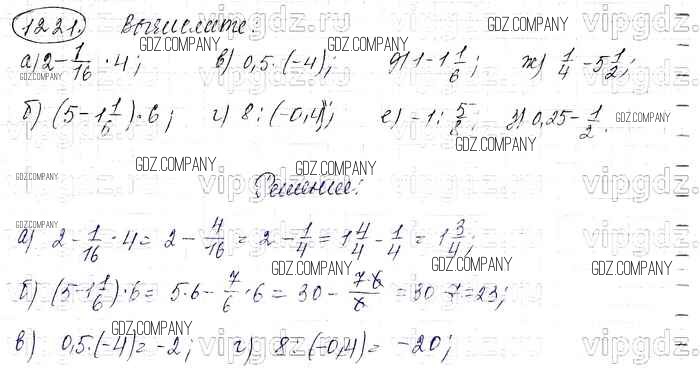 1221. Вычислите:
а) 2 - 1/16 · 4; в) 0,5 · (-4); д) 1 - 1 1/6; ж) 1/4 - 5 1/2;
б) (5 - 1 1/6) · 6; г) 8 : (-0,4); е) -1 : 5/8; з) 0,25 - 1/2.
Решение:
а) 2 - 1/16 · 4 = 2 - 4/16 = 2 - 1/4 = 1 4/4 - 1/4 = 1 3/4;
б) (5 - 1 1/6) · 6 = 5·6 - 7/6 · 6 = 30 - 7·6/6 = 30 - 7 = 23;
в) 0,5 · (-4) = -2; г) 8 : (-0,4) = -20;
GDZ.COMPANY
vipgdz.com